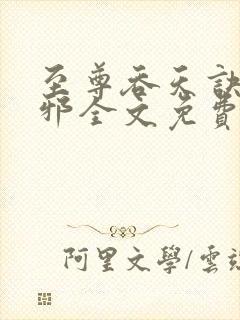 至尊吞天訣
邪全文免費
阿里文學/雲